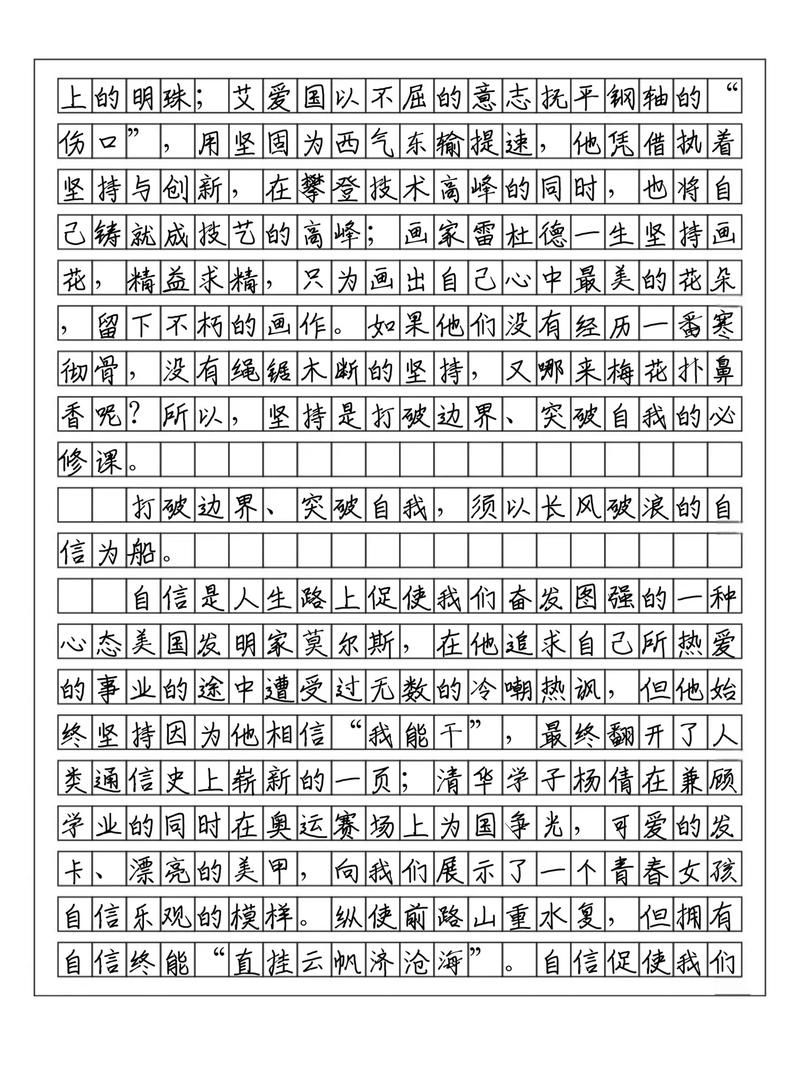 上的明珠；艾爱国以不屈的意志抚平钢轴的“
伤口”，用坚固为西气东输提速，他凭借执着
坚持与创新，在攀登技术高峰的同时，也将自
己铸就成技艺的高峰；画家雷杜德一生坚持画
花，精益求精，只为画出自己心中最美的花朵
，留下不朽的画作。如果他们没有经历一番寒
彻骨，没有绳锯木断的坚持，又哪来梅花扑鼻
香呢？所以，坚持是打破边界、突破自我的必
修课。
打破边界、突破自我，须以长风破浪的自
信为船。
自信是人生路上促使我们奋发图强的一种
心态美国发明家莫尔斯，在他追求自己所热爱
的事业的途中遭受过无数的冷嘲热讽，但他始
终坚持因为他相信“我能干”，最终翻开了人
类通信史上崭新的一页；清华学子杨倩在兼顾
学业的同时在奥运赛场上为国争光，可爱的发
卡、漂亮的美甲，向我们展示了一个青春女孩
自信乐观的模样。纵使前路山重水复，但拥有
自信终能“直挂云帆济沧海”。自信促使我们